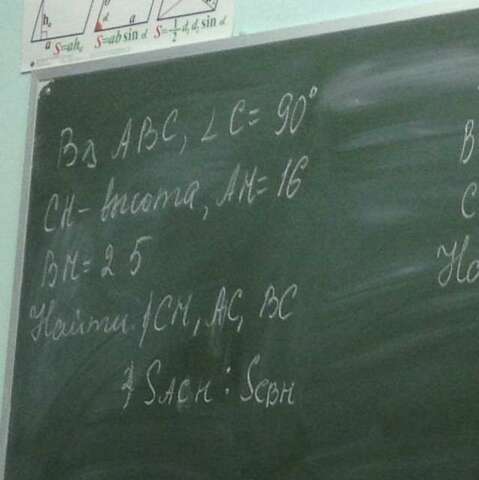 hₐ
a
S=ahₐ
a
S=ab sin α
S=½ d₁d₂ sin α
В △ ABC, ∠C = 90°
CH - высота, AH = 16
BH = 25
Найти: 1) CH, AC, BC
2) SACH : SCBH
В
С
На